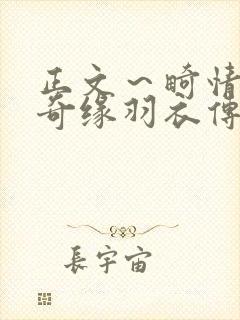 正文～畸情
奇缘羽衣傳
長宇宙